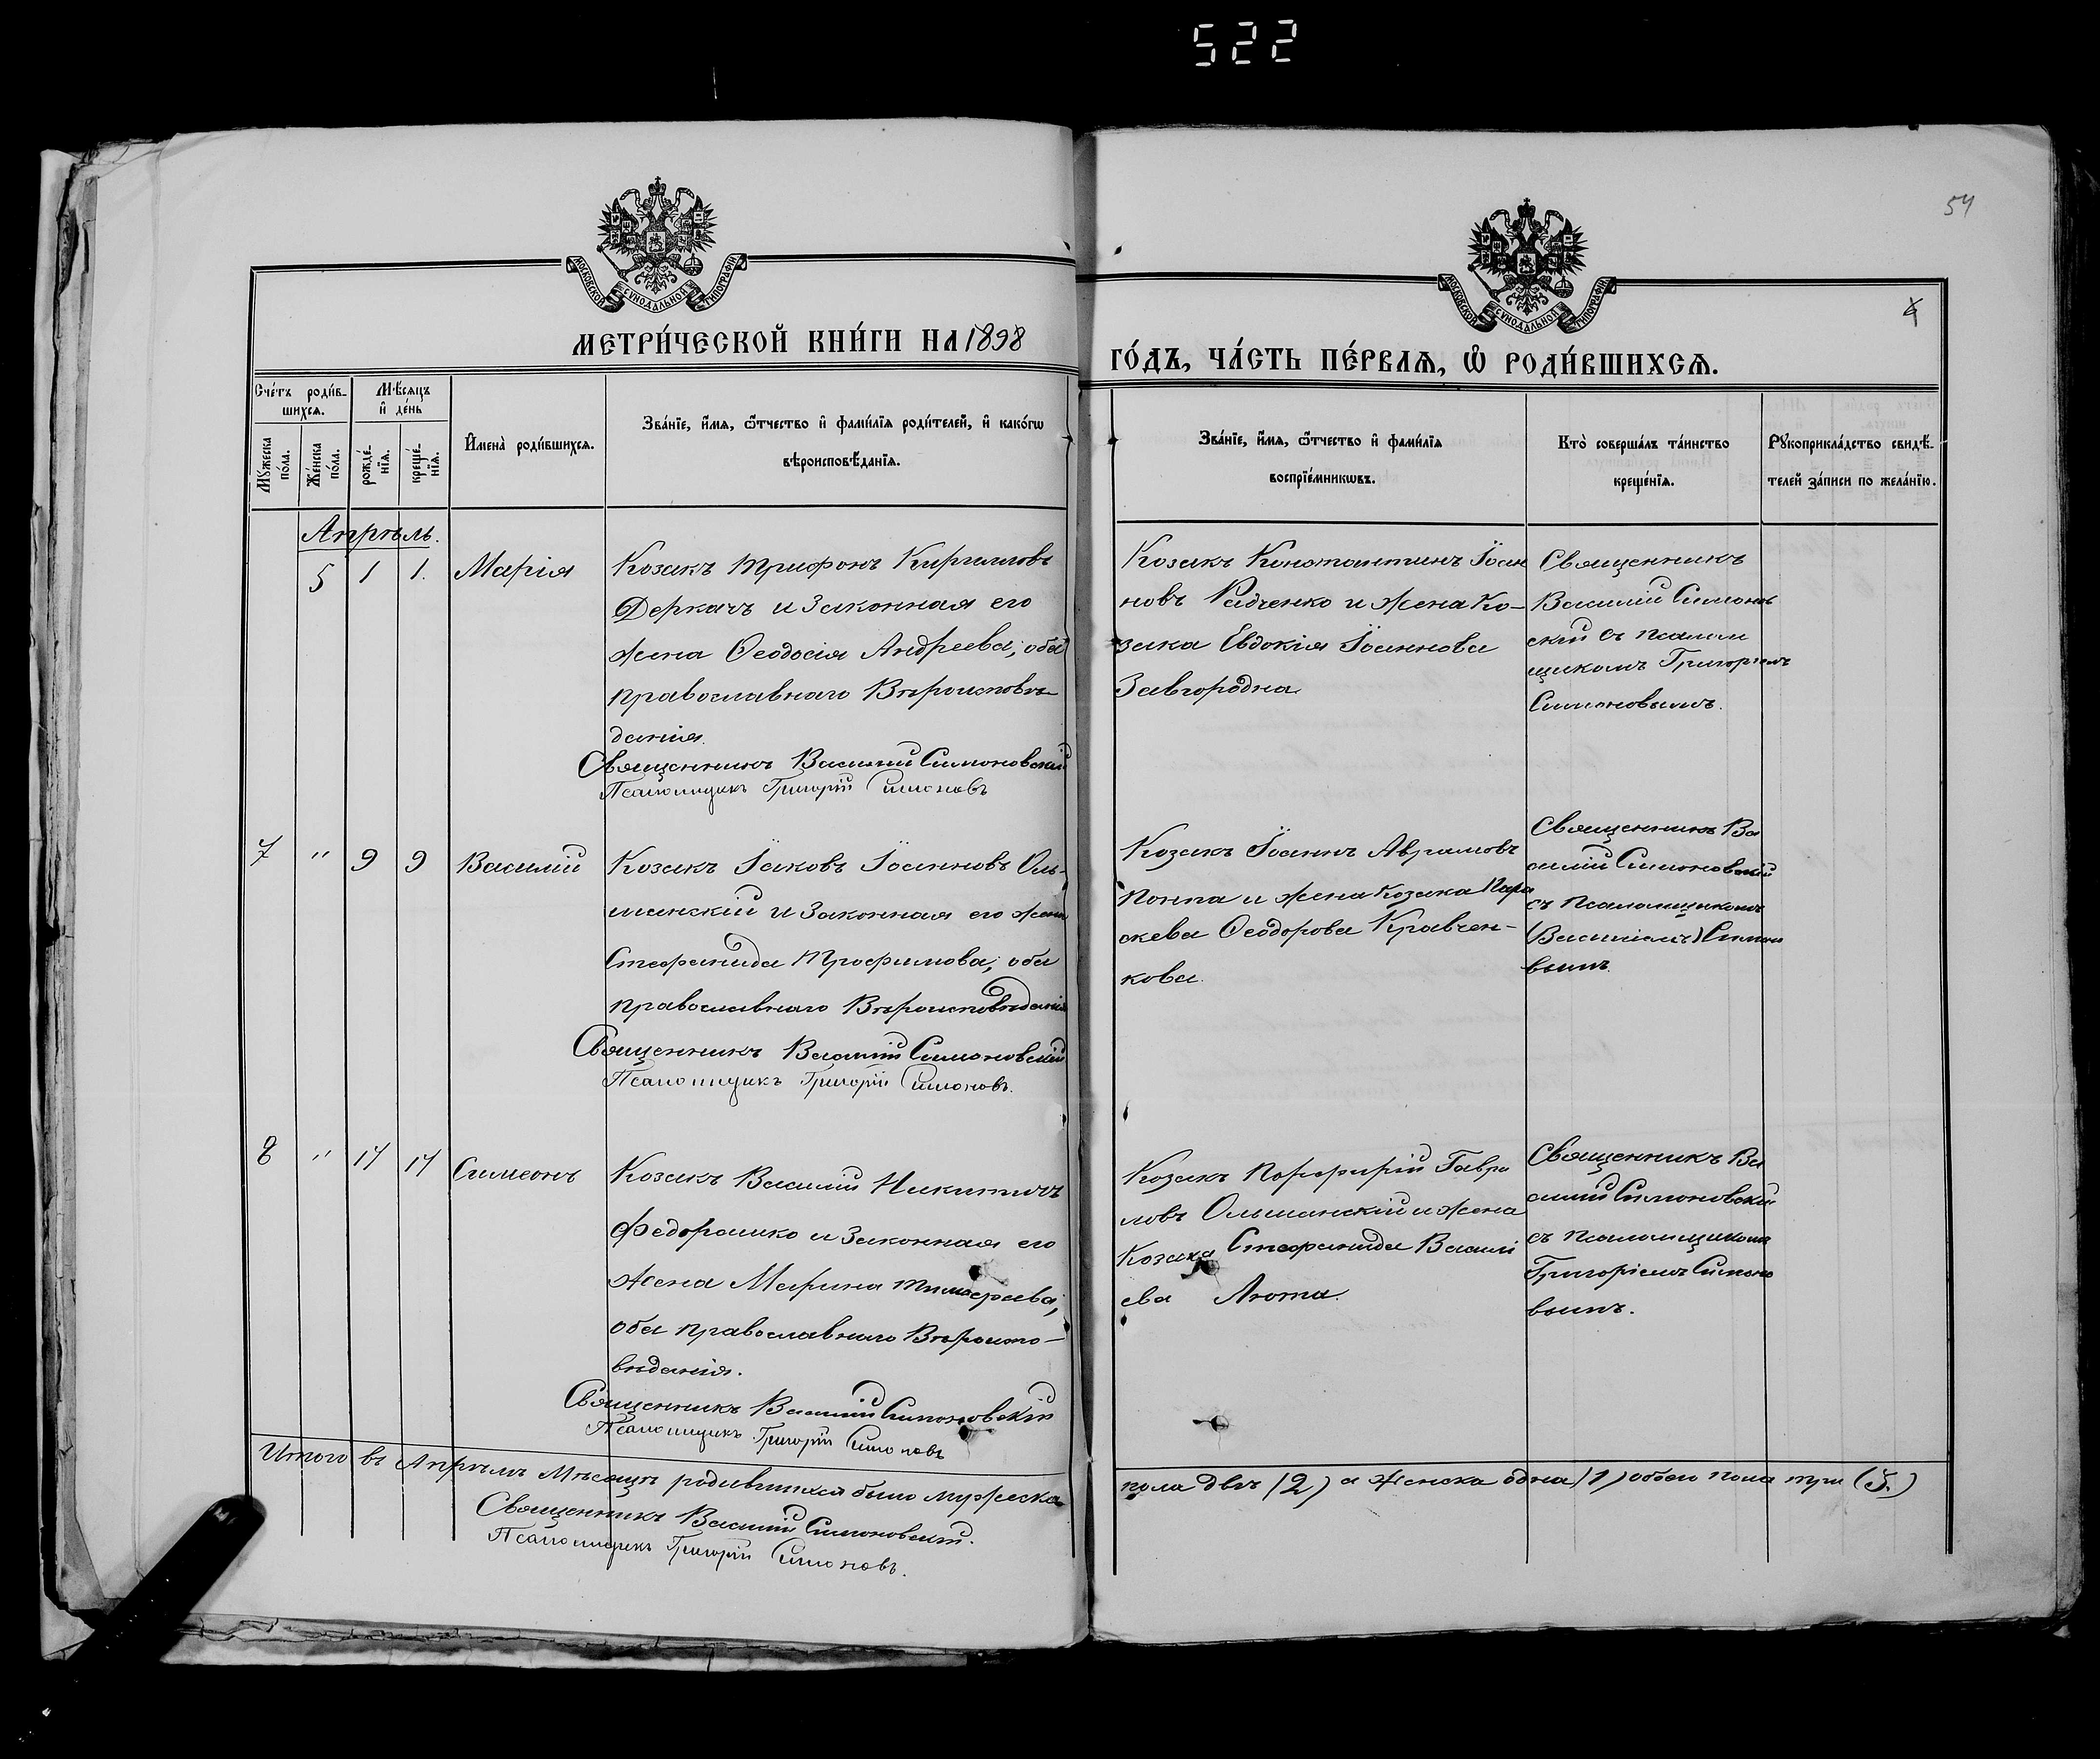 522
54
4
МОСКОВСКОЙ СѴНОДАЛЬНОЙ ТИПОГРАФІИ
МОСКОВСКОЙ СѴНОДАЛЬНОЙ ТИПОГРАФІИ
МЕТРИ́ЧЕСКОЙ КНИ́ГИ НА 1898
ГО́ДЪ, ЧА́СТЬ ПЕ́РВАѦ, Ѡ҆ РОДИ́ВШИХСѦ.
Сче́тъ роди́в-
шихсѧ.
Мꙋ́жеска
по́ла.
Же́нска
по́ла.
Мѣ́сѧцъ
и҆ де́нь
рожде́-
нїѧ.
креще́-
нїѧ.
И҆мена̀ роди́вшихсѧ.
Зва́нїе, и҆́мѧ, ѻ҆́тчество и҆ фами́лїѧ роди́телей, и҆ како́гѡ
вѣроисповѣ́данїѧ.
Зва́нїе, и҆́мѧ, ѻ҆́тчество и҆ фами́лїѧ
воспрїе́мникѡвъ.
Кто̀ соверша́лъ та́инство
креще́нїѧ.
Рꙋкоприкла́дство свидѣ́-
телей за́писи по жела́нїю.
Апрѣль.
5 1 1. Марія
Козакъ Трифонъ Кирилловъ
Деркачъ и законная его
жена Ѳеодосія Андреева, оба
православнаго вѣроисповѣ-
данія.
Священникъ Василій Симоновскій
Псаломщикъ Григорій Симоновъ
Козакъ Константинъ Іоан
новъ Радченко и жена ко-
зака Евдокія Іоаннова
Завгородна
Священникъ
Василій Симонов
скій съ псалом
щикомъ Григоріемъ
Симоновымъ.
7 " 9 9 Василій
Козакъ Іаковъ Іоанновъ Оль-
шанскій и законная его жена
Стефанида Трофимова, оба
православнаго вѣроисповѣданія
Священникъ Василій Симоновскій
Псаломщикъ Григорій Симоновъ.
Козакъ Іоаннъ Аврамовъ
Понпа и жена козака Пара
скева Ѳеодорова Кравчен-
кова.
Священникъ Ва
силій Симоновскій
съ псаломщикомъ
(Василіемъ) Симоно
вымъ
8 " 14 14 Симеонъ
Козакъ Василій Никитичъ
Федорашко и законная его
жена Марина Тимофеева,
оба православнаго вѣроиспо-
вѣданія.
Священникъ Василій Симоновскій
Псаломщикъ Григорій Симоновъ
Козакъ Порфирій Гаври
ловъ Ольшанскій и жена
козака Стефанида Василі
ева Люта.
Священникъ Ва
силій Симоновскій
съ псаломщикомъ
Григоріемъ Симоно
вымъ.
Итого въ Апрѣлѣ мѣсяцѣ родившихся было мужеска
пола двѣ (2) а женска одна (1) обоего пола три (3.)
Священникъ Василій Симоновскій.
Псаломщикъ Григорій Симоновъ.